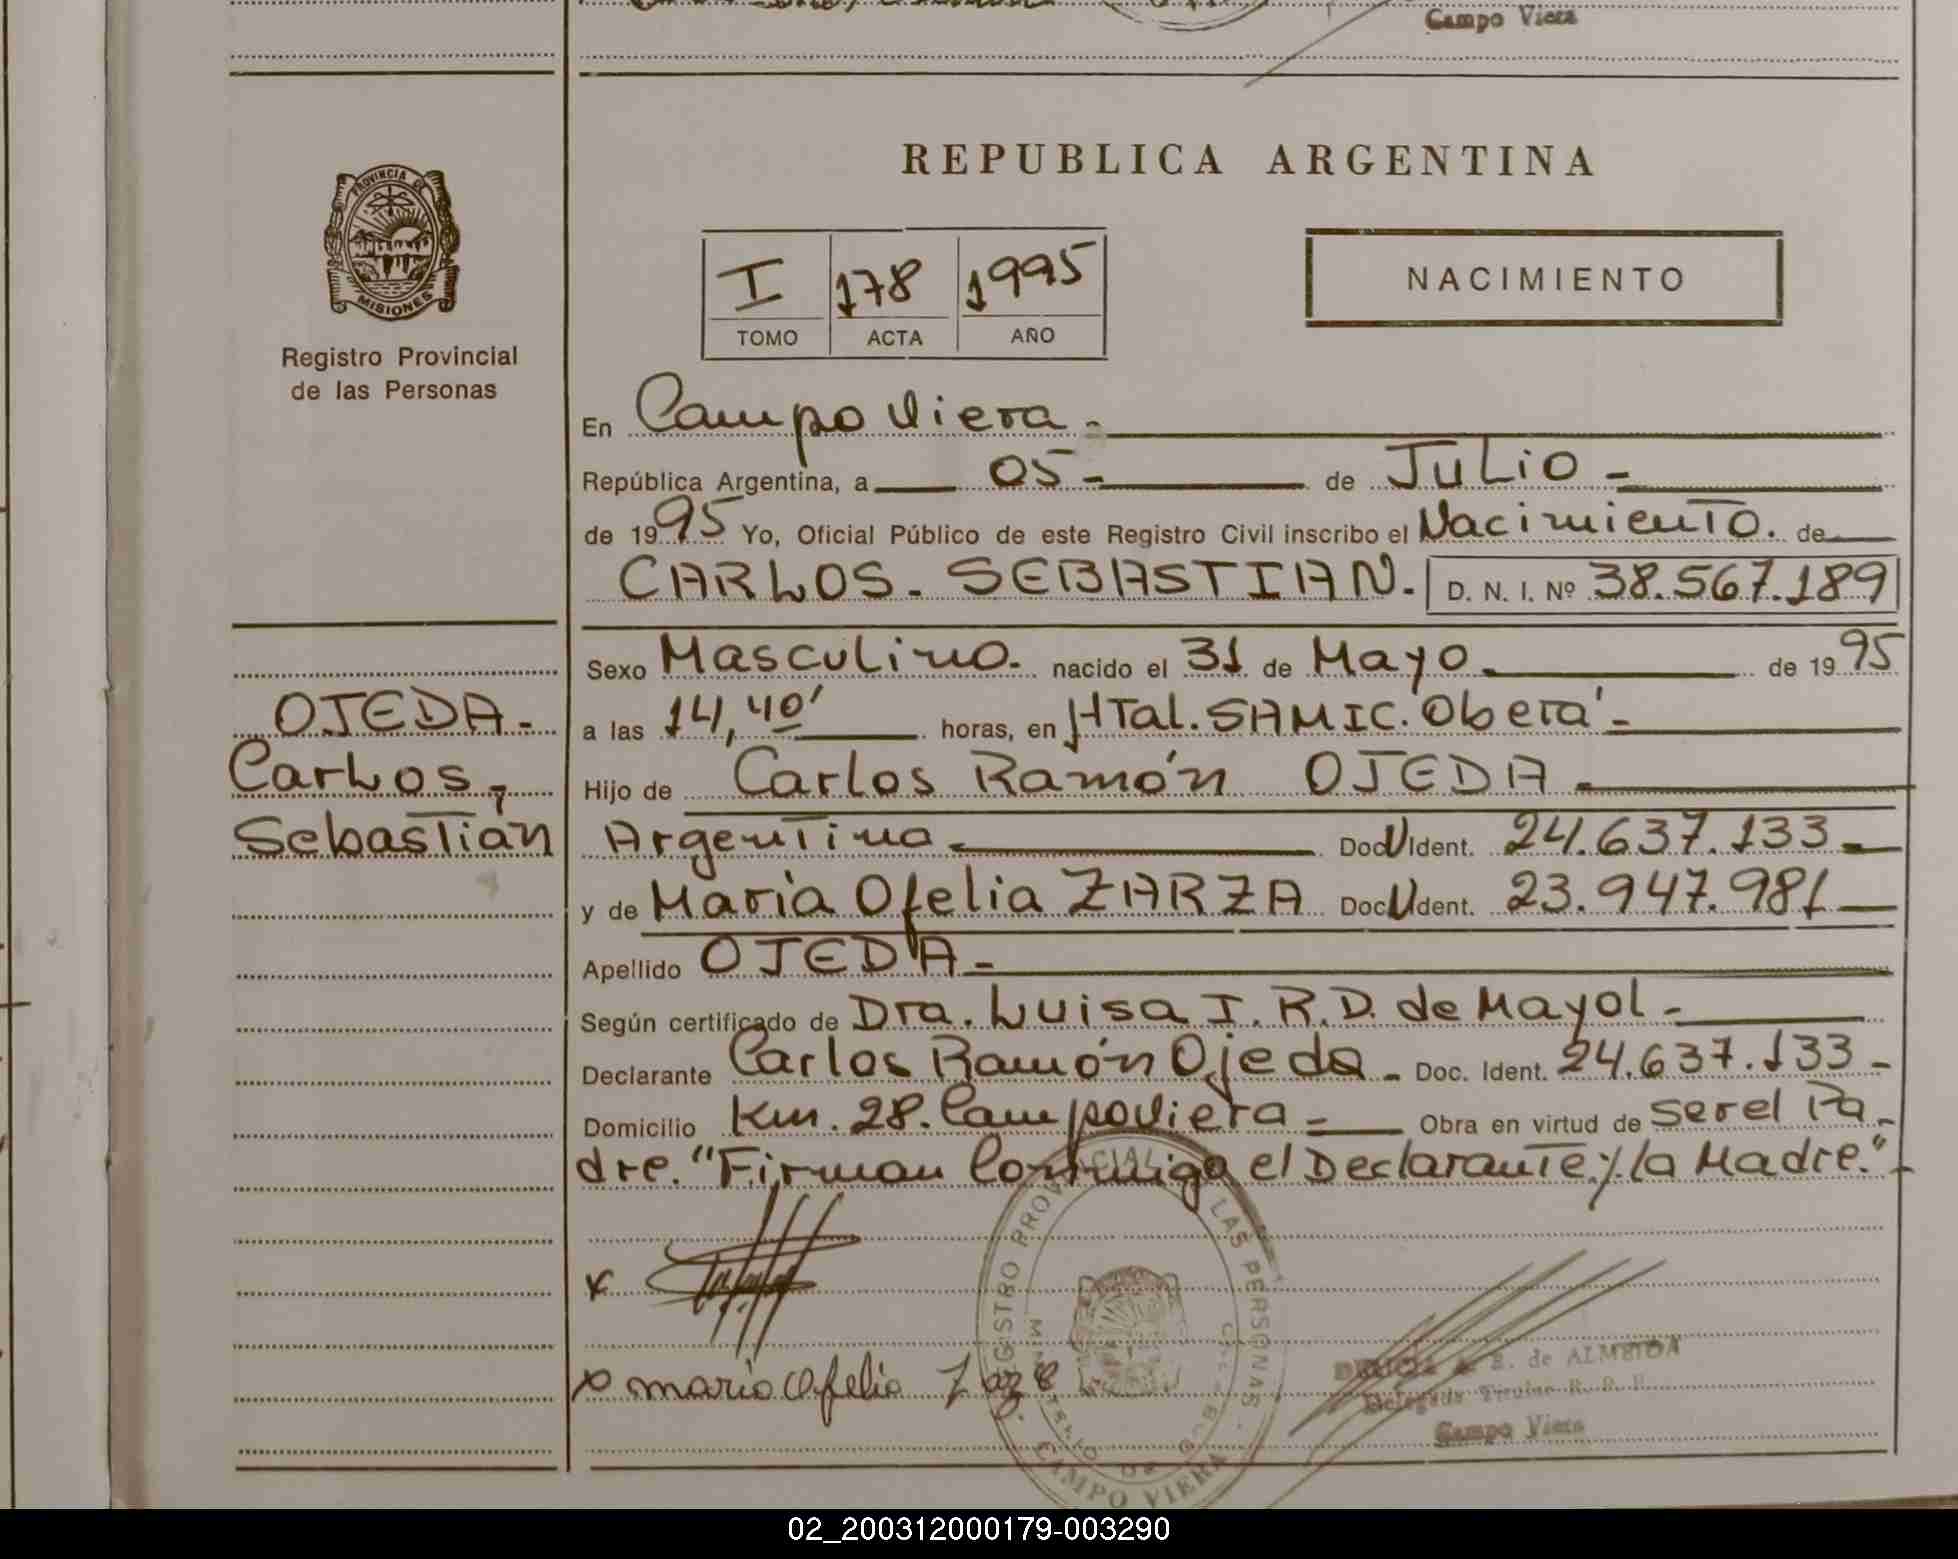 Campo Viera
REPUBLICA ARGENTINA
PROVINCIA DE
MISIONES
Registro Provincial
de las Personas
I 178 1995
TOMO ACTA AÑO
NACIMIENTO
En Campo Viera -
República Argentina, a 05 - de JULIO -
de 1995 Yo, Oficial Público de este Registro Civil inscribo el Nacimiento. de
CARLOS. SEBASTIAN. D. N. I. Nº 38.567.189
Sexo Masculino. nacido el 31 de Mayo. de 1995
a las 14,40' horas, en HTal. SAMIC. Oberá -
Hijo de Carlos Ramón OJEDA.
Argentina Doc U Ident. 24.637.133
y de María Ofelia ZARZA Doc U Ident. 23.947.981
Apellido OJEDA -
Según certificado de Dra. Luisa I. R.D. de Mayol -
Declarante Carlos Ramón Ojeda - Doc. Ident. 24.637.133 -
Domicilio Km. 28. Campo Viera - Obra en virtud de ser el Pa-
dre. "Firman Conmigo el Declarante y la Madre."
OJEDA -
Carlos,
Sebastián
x
x maria Ofelia
REGISTRO PROVINCIAL DE LAS PERSONAS
CAMPO VIERA
B. de ALMEIDA
Delegada Titular R. P. P.
Campo Viera
02_200312000179-003290